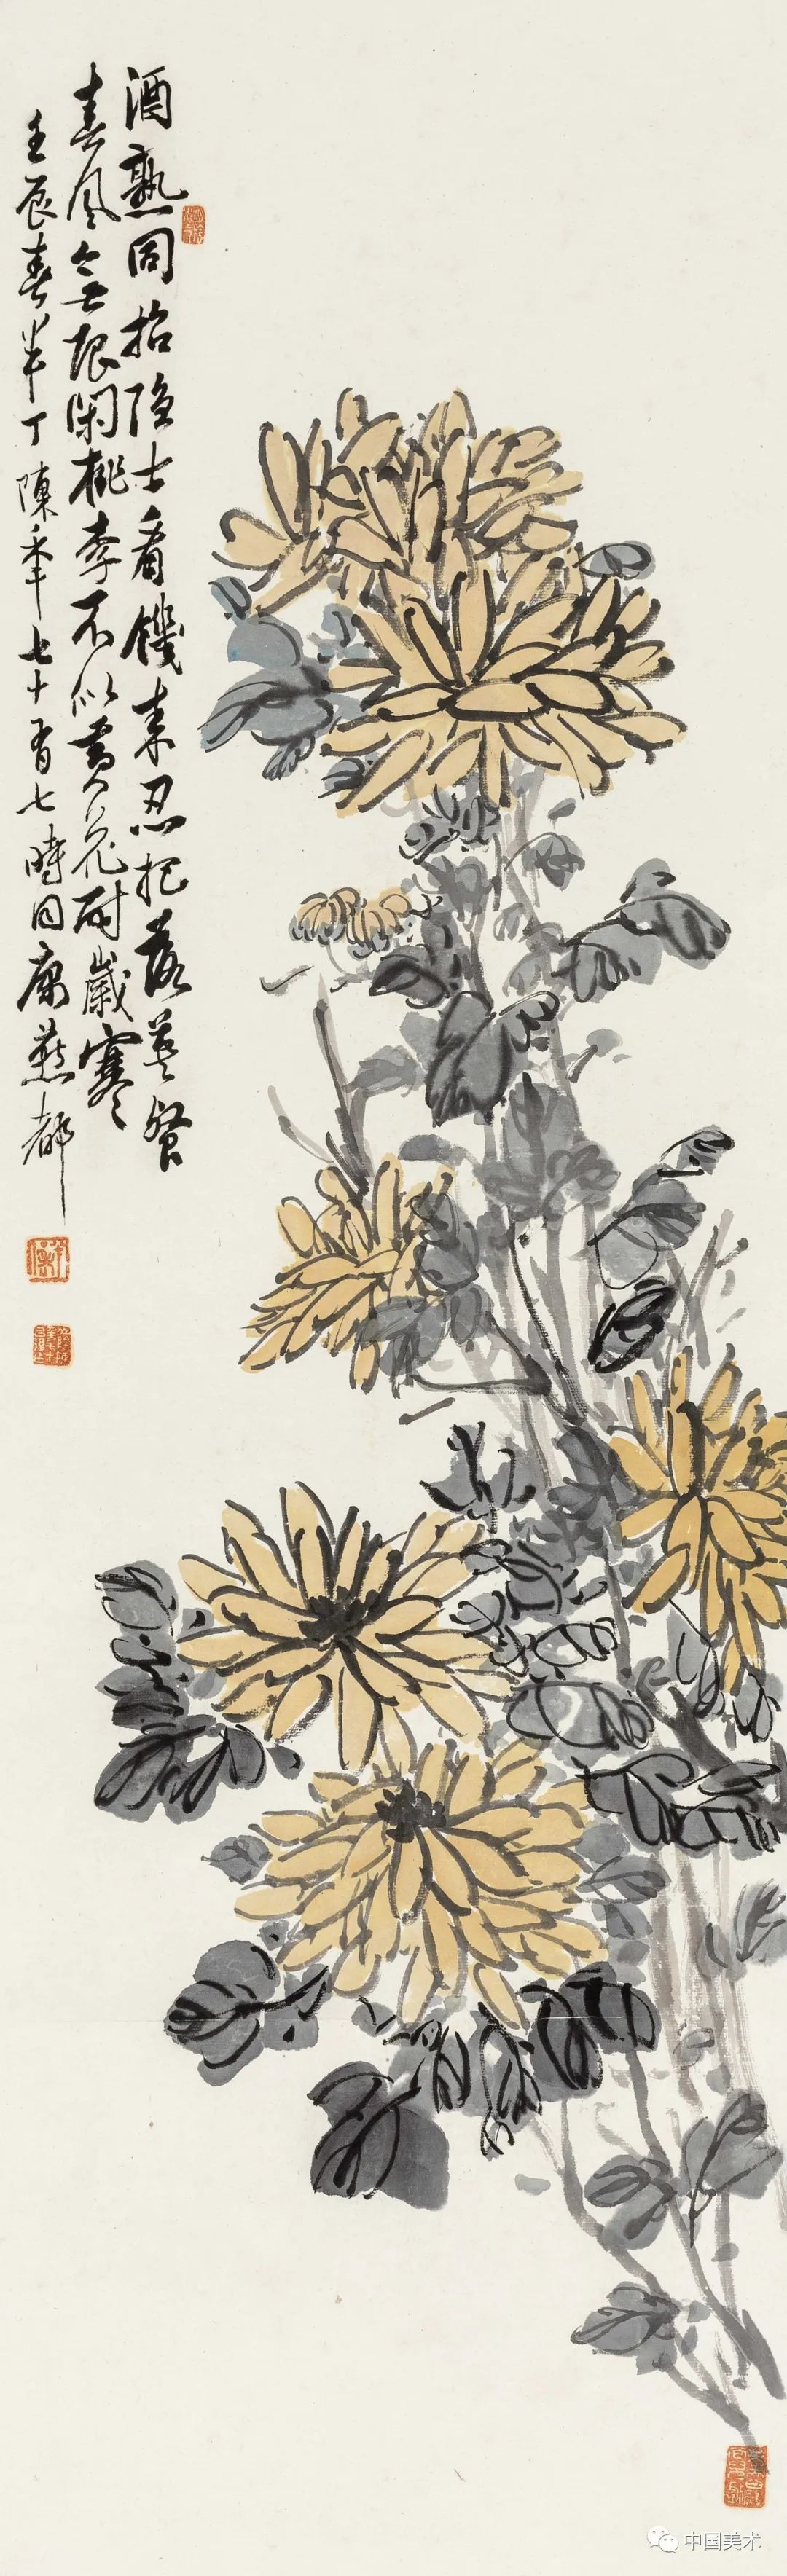 酒熟同招隐士看饑来忍把落英餐
春风无限闲桃李不似黄花耐岁寒
壬辰春半丁陈年七十有七時同康燕都
中国美术